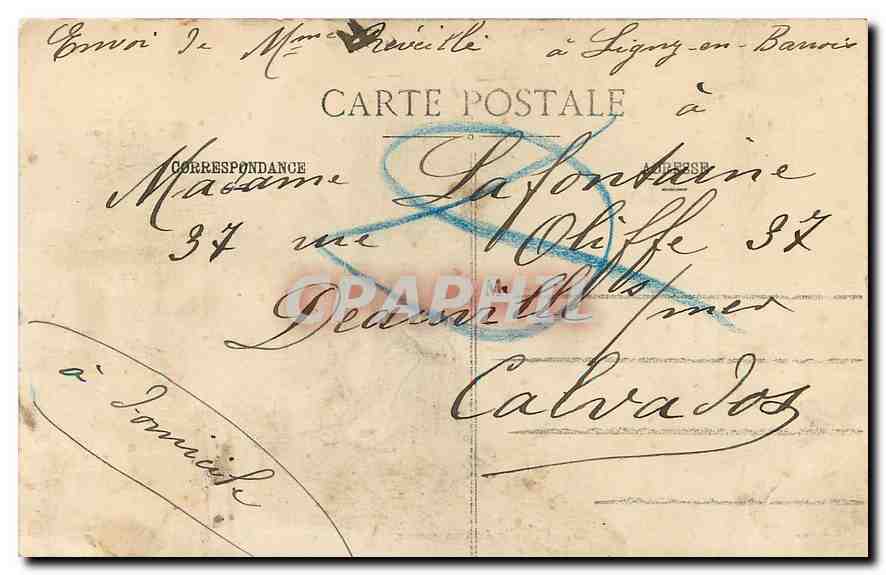 Envoi de Mme Réveillé à Ligny-en-Barrois
CARTE POSTALE
à
CORRESPONDANCE
ADRESSE
Madame Lafontaine
37 rue Oliffe 37
M
CARAPHIL
Deauville s/mer
Calvados
à domicile